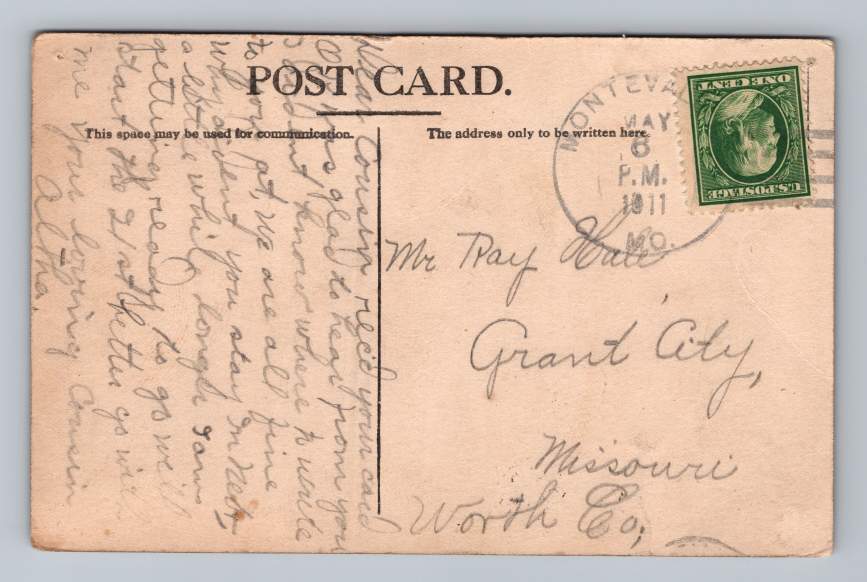 POST CARD.
This space may be used for communication.
The address only to be written here.
MONTEVA
MAY
6
P.M.
1911
MO.
ONE CENT
U.S. POSTAGE
Mr Ray Hale
Grant City,
Missouri
Worth Co,
Dear Cousin rec'd your card
was glad to hear from you
I didn't know where to write
to you at, we are all fine
why didn't you stay in Neb,
a little while longer I am
getting ready to go will
start the 21st better go with
me your loving Cousin
Altha.